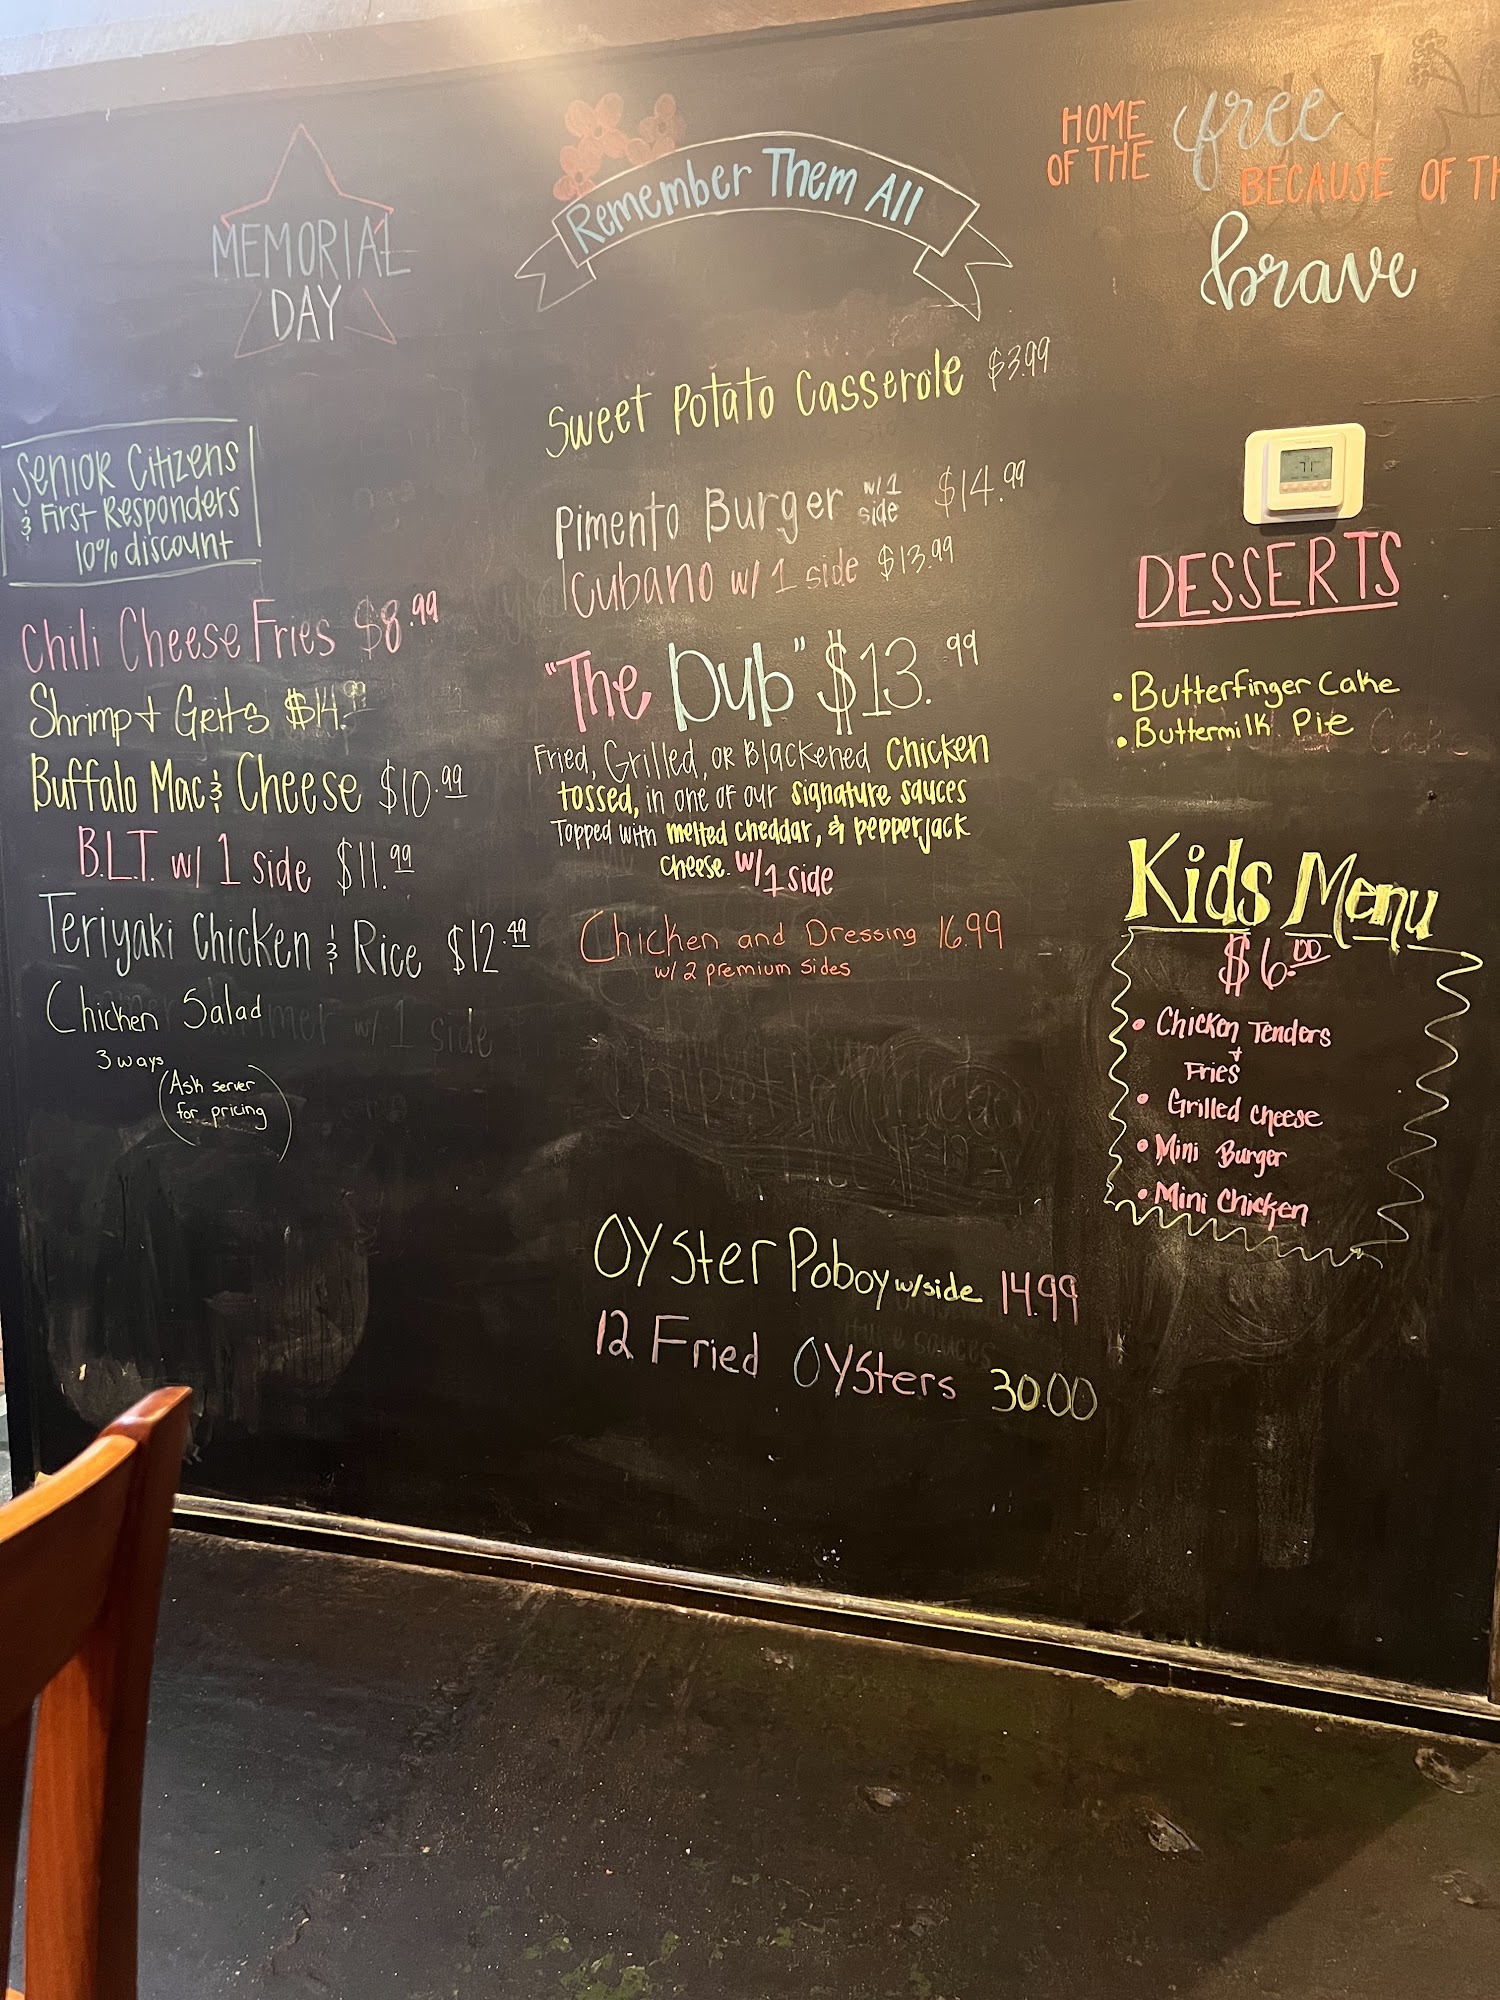 MEMORIAL
DAY
Remember Them All
HOME
OF THE
free
BECAUSE OF
brave
Senior Citizens
& First Responders
10% discount
Chili Cheese Fries $8.99
Shrimp + Grits $14.99
Buffalo Mac & Cheese $10.99
B.L.T. w/ 1 side $11.99
Teriyaki Chicken & Rice $12.49
Chicken Salad
3 ways
(Ask server
for pricing)
Sweet Potato Casserole $3.99
Pimento Burger w/1 side $14.99
Cubano w/ 1 side $13.99
"The Dub" $13.99
Fried, Grilled, or Blackened Chicken
tossed, in one of our signature sauces
Topped with melted cheddar, & pepperjack
cheese. w/1 side
Chicken and Dressing 16.99
w/ 2 premium sides
Oyster Poboy w/side 14.99
12 Fried Oysters 30.00
DESSERTS
• Butterfinger Cake
• Buttermilk Pie
Kids Menu
$6.00
• Chicken Tenders
+
Fries
• Grilled cheese
• Mini Burger
• Mini Chicken